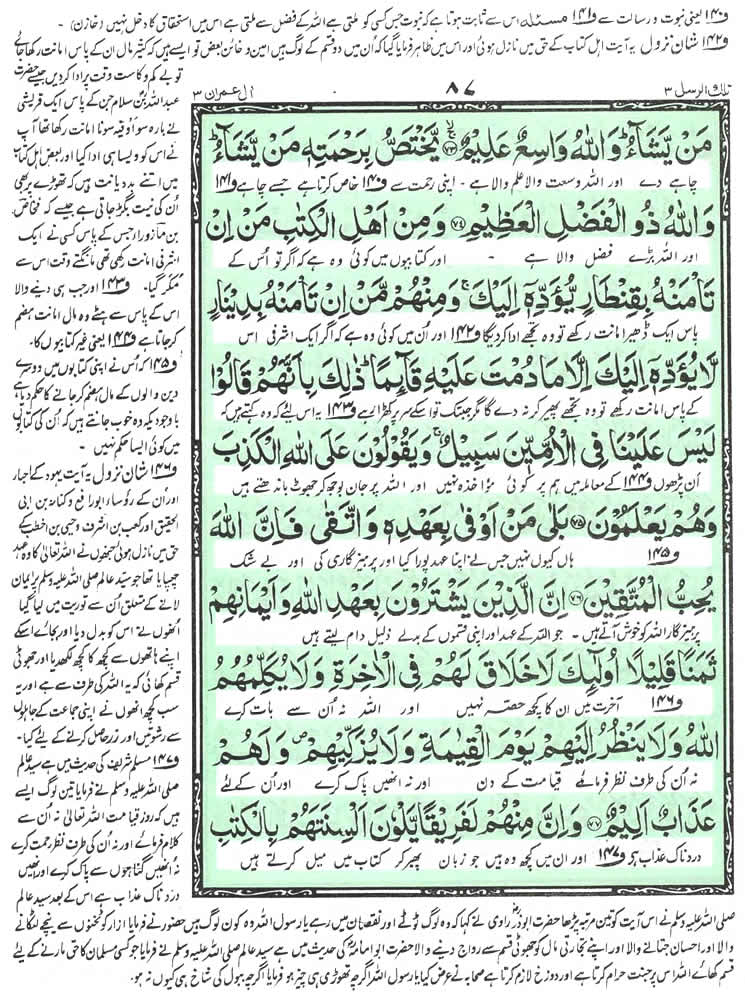 ف۱۴۰ یعنی نبوت و رسالت سے ف۱۴۱ مسئلہ اس سے ثابت ہوتا ہے کہ نبوت جس کسی کو ملتی ہے اللہ کے فضل سے ملتی ہے اس میں استحقاق کا دخل نہیں (خازن)
ف۱۴۲ شان نزول یہ آیت اہل کتاب کے حق میں نازل ہوئی اور اس میں ظاہر فرمایا گیا کہ اُن میں دو قسم کے لوگ ہیں امین و خائن بعض تو ایسے ہیں کہ کثیر مال ان کے پاس امانت رکھا جائے
تلك الرسل ۳
۸۷
اٰل عمران ۳
مَنْ يَّشَآءُ ؕ وَاللّٰهُ وَاسِعٌ عَلِيْمٌ ۷۳ يَّخْتَصُّ بِرَحْمَتِهٖ مَنْ يَّشَآءُ ؕ
چاہے دے اور اللہ وسعت والا علم والا ہے - اپنی رحمت سے ف۱۴۰ خاص کرتا ہے جسے چاہے ف۱۴۱
وَاللّٰهُ ذُو الْفَضْلِ الْعَظِيْمِ ۷۴ وَمِنْ اَهْلِ الْكِتٰبِ مَنْ اِنْ
اور اللہ بڑے فضل والا ہے - اور کتابیوں میں کوئی وہ ہے کہ اگر تو اُس کے
تَاْمَنْهُ بِقِنْطَارٍ يُّؤَدِّهٖۤ اِلَيْكَ ۚ وَمِنْهُمْ مَّنْ اِنْ تَاْمَنْهُ بِدِيْنَارٍ
پاس ایک ڈھیر امانت رکھے تو وہ تجھے ادا کر دیگا ف۱۴۲ اور اُن میں کوئی وہ ہے کہ اگر ایک اشرفی اس
لَّا يُؤَدِّهٖۤ اِلَيْكَ اِلَّا مَا دُمْتَ عَلَيْهِ قَآئِمًا ؕ ذٰلِكَ بِاَنَّهُمْ قَالُوْا
کے پاس امانت رکھے تو وہ تجھے پھیر کر نہ دے گا مگر جبتک تو اسکے سر پر کھڑا رہے ف۱۴۳ یہ اس لیے کہ وہ کہتے ہیں کہ
لَيْسَ عَلَيْنَا فِى الْاُمِّيّٖنَ سَبِيْلٌ ۚ وَيَقُوْلُوْنَ عَلَى اللّٰهِ الْكَذِبَ
اَن پڑھوں ف۱۴۴ کے معاملہ میں ہم پر کوئی مؤاخذہ نہیں اور اللہ پر جان بوجھ کر جھوٹ باندھتے ہیں
وَهُمْ يَعْلَمُوْنَ ۷۵ بَلٰى مَنْ اَوْفٰى بِعَهْدِهٖ وَاتَّقٰى فَاِنَّ اللّٰهَ
ف۱۴۵ ہاں کیوں نہیں جس نے اپنا عہد پورا کیا اور پرہیزگاری کی اور بے شک
يُحِبُّ الْمُتَّقِيْنَ ۷۶ اِنَّ الَّذِيْنَ يَشْتَرُوْنَ بِعَهْدِ اللّٰهِ وَاَيْمَانِهِمْ
پرہیزگار اللہ کو خوش آتے ہیں - جو اللہ کے عہد اور اپنی قسموں کے بدلے ذلیل دام لیتے ہیں
ثَمَنًا قَلِيْلًا اُولٰٓئِكَ لَا خَلَاقَ لَهُمْ فِى الْاٰخِرَةِ وَلَا يُكَلِّمُهُمُ
ف۱۴۶ آخرت میں ان کا کچھ حصہ نہیں اور اللہ نہ اُن سے بات کرے
اللّٰهُ وَلَا يَنْظُرُ اِلَيْهِمْ يَوْمَ الْقِيٰمَةِ وَلَا يُزَكِّيْهِمْ ۪ وَلَهُمْ
نہ اُن کی طرف نظر فرمائے قیامت کے دن اور نہ انھیں پاک کرے اور اُن کے لئے
عَذَابٌ اَلِيْمٌ ۷۷ وَاِنَّ مِنْهُمْ لَفَرِيْقًا يَّلْوٗنَ اَلْسِنَتَهُمْ بِالْكِتٰبِ
دردناک عذاب ہے ف۱۴۷ اور ان میں کچھ وہ ہیں جو زبان پھیر کر کتاب میں میل کرتے ہیں
تو بے کم و کاست وقت پر ادا کر دیں جیسے حضرت
عبداللہ بن سلام جن کے پاس ایک قریشی
نے بارہ سو اوقیہ سونا امانت رکھا تھا آپ
نے اس کو ویسا ہی ادا کیا اور بعض اہل کتاب
میں اتنے بددیانت ہیں کہ تھوڑے پر بھی
اُن کی نیت بگڑ جاتی ہے جیسے کہ فنحاص
بن عازوراء جس کے پاس کسی نے ایک
اشرفی امانت رکھی تھی مانگتے وقت اس سے
مُکر گیا - ف۱۴۳ اور جب ہی دینے والا
اس کے پاس سے ہٹے وہ مال امانت ہضم
کر جاتا ہے ف۱۴۴ یعنی غیر کتابیوں کا
ف۱۴۵ کہ اُس نے اپنی کتابوں میں دوسرے
دین والوں کے مال ہضم کر جانے کا حکم دیا ہے
باوجودیکہ وہ خوب جانتے ہیں کہ اُن کی کتابوں
میں کوئی ایسا حکم نہیں -
ف۱۴۶ شان نزول یہ آیت یہود کے احبار
اور اُن کے رؤساء ابو رافع و کنانہ بن ابی
الحقیق اور کعب بن اشرف و حیی بن اخطب کے
حق میں نازل ہوئی جنھوں نے اللہ تعالیٰ کا وہ عہد
چھپایا تھا جو سید عالم صلی اللہ علیہ وسلم پر ایمان
لانے کے متعلق اُن سے توریت میں لیا گیا
اُنھوں نے اس کو بدل دیا اور بجائے اسکے
اپنے ہاتھوں سے کچھ کا کچھ لکھدیا اور جھوٹی
قسم کھائی کہ یہ اللہ کی طرف سے ہے اور یہ
سب کچھ انھوں نے اپنی جماعت کے جاہلوں
سے رشوتیں اور زر حاصل کرنے کے لئے کیا -
ف۱۴۷ مسلم شریف کی حدیث میں ہے سید عالم
صلی اللہ علیہ وسلم نے فرمایا تین لوگ ایسے
ہیں کہ روز قیامت اللہ تعالیٰ نہ اُن سے
کلام فرمائے اور نہ اُن کی طرف نظر رحمت کرے
نہ اُنھیں گناہوں سے پاک کرے اور انھیں
دردناک عذاب ہے اس کے بعد سید عالم
صلی اللہ علیہ وسلم نے اس آیت کو تین مرتبہ پڑھا حضرت ابوذر راوی نے کہا کہ وہ لوگ ٹوٹے اور نقصان میں رہے یا رسول اللہ وہ کون لوگ ہیں حضور نے فرمایا ازار کو ٹخنوں سے نیچے لٹکانے
والا اور احسان جتانے والا اور اپنے تجارتی مال کو جھوٹی قسم سے رواج دینے والا حضرت ابو امامہ کی حدیث میں ہے سید عالم صلی اللہ علیہ وسلم نے فرمایا جو کسی مسلمان کا حق مارنے کے لئے
قسم کھائے اللہ اس پر جنت حرام کرتا ہے اور دوزخ لازم کرتا ہے صحابہ نے عرض کیا یا رسول اللہ اگرچہ تھوڑی ہی چیز ہو فرمایا اگرچہ ببول کی شاخ ہی کیوں نہ ہو -